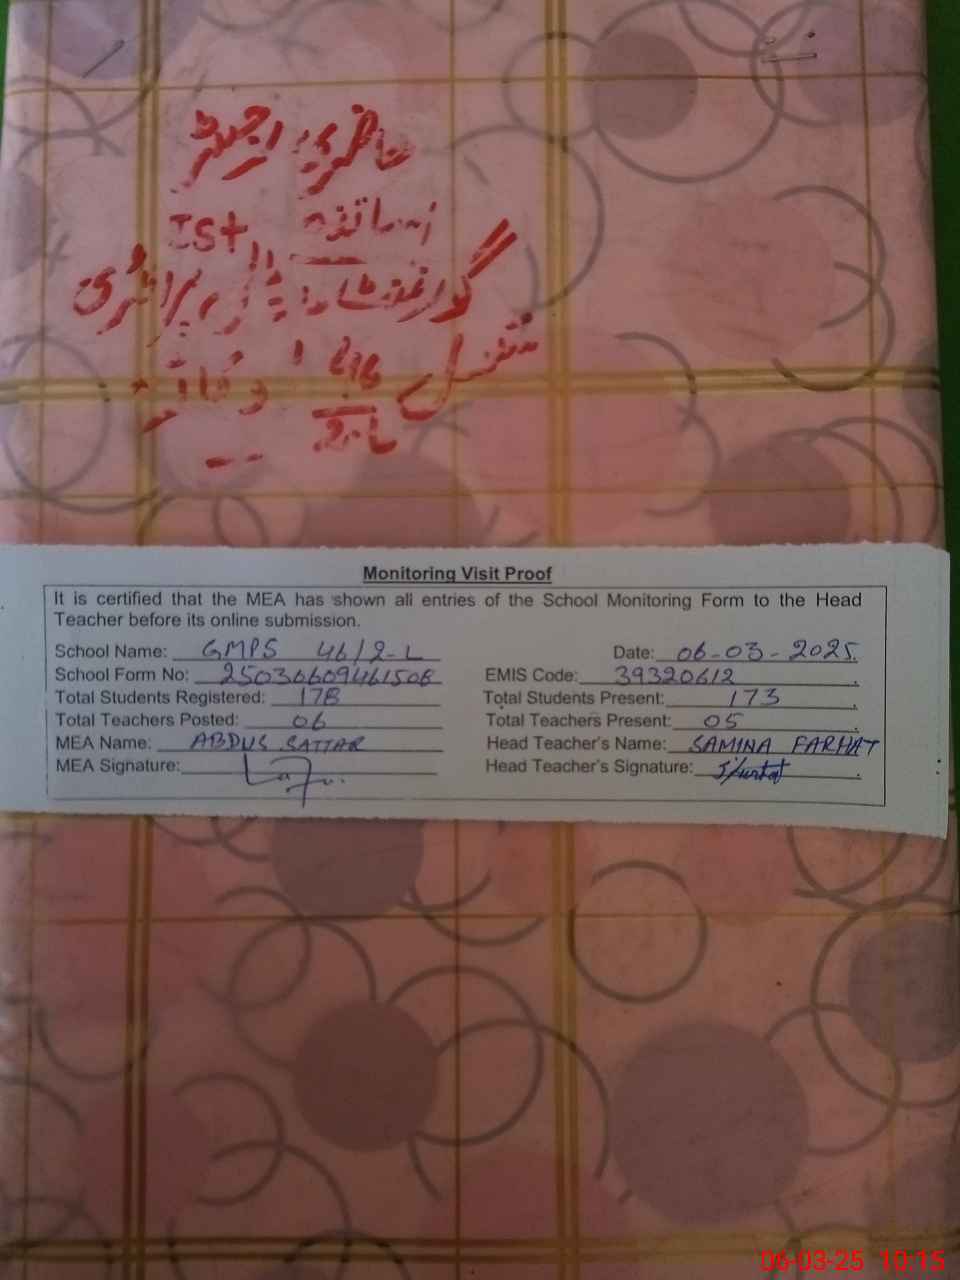 حاضری رجسٹر
اساتذہ Ist
گورنمنٹ ماڈل پرائمری
سکول 46/2-L
Monitoring Visit Proof
It is certified that the MEA has shown all entries of the School Monitoring Form to the Head
Teacher before its online submission.
School Name: GMPS 46/2-L Date: 06-03-2025
School Form No: EMIS Code: 39320612
Total Students Registered: 178 Total Students Present: 173
Total Teachers Posted: 06 Total Teachers Present: 05
MEA Name: ABDUS SATTAR Head Teacher's Name: SAMINA FARHAT
MEA Signature: Head Teacher's Signature:
06-03-25 10:15